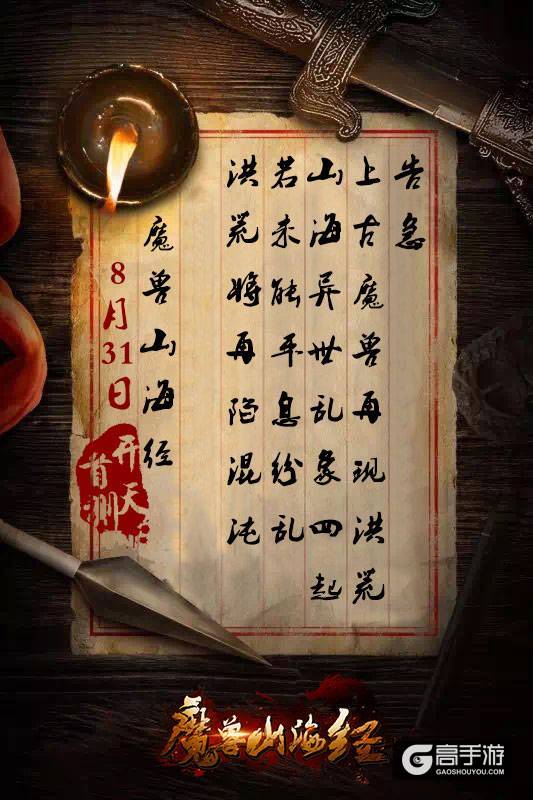 告急
上古魔兽再现洪荒
山海异世乱象四起
若未能平息纷乱
洪荒将再陷混沌
魔兽山海经
8月31日
开天
首测
魔兽山海经
高手游
GAOSHOUYOU.COM